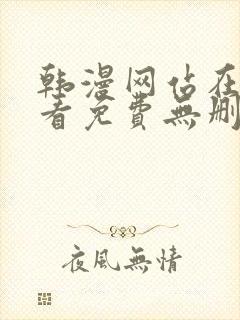 韩漫网站在
看免費無刪
夜風無情